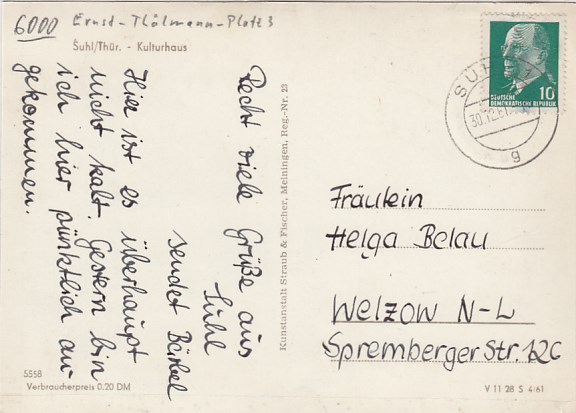 6000 Ernst-Thälmann-Platz 3
Suhl/Thür. - Kulturhaus
Recht viele Grüße aus
Suhl
sendet Bärbel
Hier ist es überhaupt
nicht kalt. Gestern bin
ich hier pünktlich an-
gekommen.
Kunstanstalt Straub & Fischer, Meiningen, Reg.-Nr. 23
10
DEUTSCHE
DEMOKRATISCHE REPUBLIK
SUHL 1
30.12.61
g
Fräulein
Helga Belau
Welzow N-L
Spremberger Str. 12c
5558
Verbraucherpreis 0.20 DM
V 11 28 S 4/61